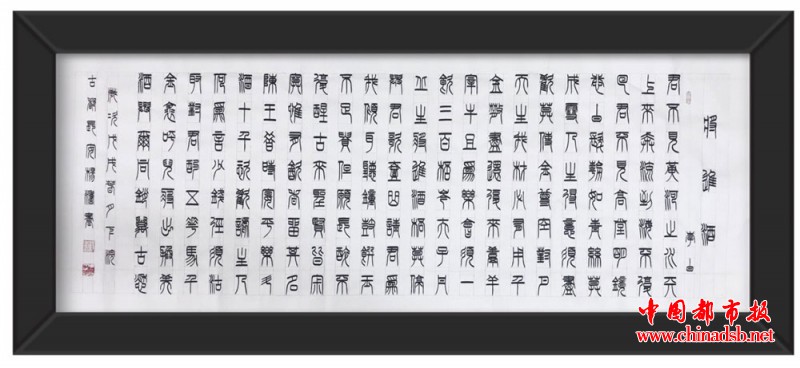 將進酒
李白
君不見黃河之水天
上來奔流到海不復
回君不見高堂明鏡
悲白髮朝如青絲莫
成雪人生得意須盡
歡莫使金尊空對月
天生我材必有用千
金散盡還復來烹羊
宰牛且爲樂會須一
飲三百杯岑夫子丹
丘生將進酒杯莫停
與君歌一曲請君爲
我傾耳聽鐘鼓饌玉
不足貴但願長醉不
復醒古來聖賢皆寂
寞惟有飲者留其名
陳王昔時宴平樂斗
酒十千恣歡謔主人
何爲言少錢徑須沽
取對君酌五花馬千
金裘呼兒將出換美
酒與爾同銷萬古愁
歲次戊戌
中国都市报
www.chinadsb.net